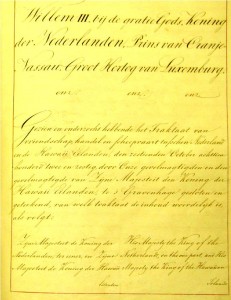 Willem III, bij de gratie Gods, Koning
der Nederlanden, Prins van Oranje-
Nassau, Groot Hertog van Luxemburg,
enz enz enz
Gezien en onderzocht hebbende het Traktaat van
vriendschap, handel en scheepvaart tusschen Nederland
en de Hawaii Eilanden, den zestienden October achttien
honderd twee en zestig door Onze gevolmagtigden en den
gevolmagtigde van Zijne Majesteit den Koning der
Hawaii Eilanden, te 's Gravenhage gesloten en
geteekend, van welk traktaat de inhoud woordelijk is
als volgt:
Zijne Majesteit de Koning der
Nederlanden, ter eenre, en Zijne
Majesteit de Koning der Hawaii
Eilanden
His Majesty the King of the
Netherlands, on the one part, and His
Majesty the King of the Hawaiian
Islands